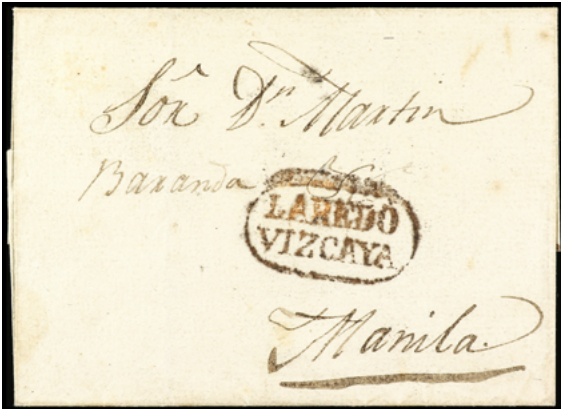 Sõr. Dn. Martin
Baranda
LAREDO
VIZCAYA
Manila.